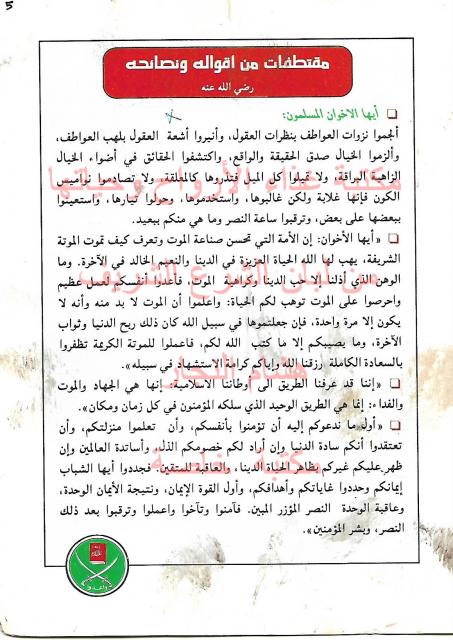 5
مقتطفات من اقواله ونصائحه
رضي الله عنه
❑ أيها الاخوان المسلمون:
ألجموا نزوات العواطف بنظرات العقول، وأنيروا أشعة العقول بلهب العواطف،
وألزموا الخيال صدق الحقيقة والواقع، واكتشفوا الحقائق في أضواء الخيال
الزاهية البراقة، ولا تميلوا كل الميل فتذروها كالمعلقة، ولا تصادموا نواميس
الكون فإنها غلابة ولكن غالبوها، واستخدموها، وحولوا تيارها، واستعينوا
ببعضها على بعض، وترقبوا ساعة النصر وما هي منكم ببعيد.
❑ «أيها الأخوان: إن الأمة التي تحسن صناعة الموت وتعرف كيف تموت الموتة
الشريفة، يهب لها الله الحياة العزيزة في الدينا والنعيم الخالد في الآخرة. وما
الوهن الذي أذلنا إلا حب الدينا وكراهية الموت، فأعدوا أنفسكم لعمل عظيم
واحرصوا على الموت توهب لكم الحياة: واعلموا أن الموت لا بد منه وأنه لا
يكون إلا مرة واحدة، فإن جعلتموها في سبيل الله كان ذلك ربح الدنيا وثواب
الآخرة، وما يصيبكم إلا ما كتب الله لكم، فاعملوا للموتة الكريمة تظفروا
بالسعادة الكاملة رزقنا الله وإياكم كرامة الاستشهاد في سبيله».
❑ «إننا قد عرفنا الطريق الى أوطاننا الاسلامية: إنها هي الجهاد والموت
والفداء: إنما هي الطريق الوحيد الذي سلكه المؤمنون في كل زمان ومكان».
❑ «أول ما ندعوكم إليه أن تؤمنوا بأنفسكم، وأن تعلموا منزلتكم، وأن
تعتقدوا أنكم سادة الدنيا وإن أراد لكم خصومكم الذل، وأساتدة العالمين وإن
ظهر عليكم غيركم بظاهر الحياة الدينا، والعاقبة للمتقين. فجددوا أيها الشباب
إيمانكم وحددوا غاياتكم وأهدافكم، وأول القوة الإيمان، ونتيجة الأيمان الوحدة،
وعاقبة الوحدة النصر المؤزر المبين. فآمنوا وتآخوا واعملوا وترقبوا بعد ذلك
النصر، وبشر المؤمنين».
وأعدوا
مكتبة غذاء الأرواح وحياتها
من لبنان الشرع الشريف
هشام النجار
مكتبة فاطمة